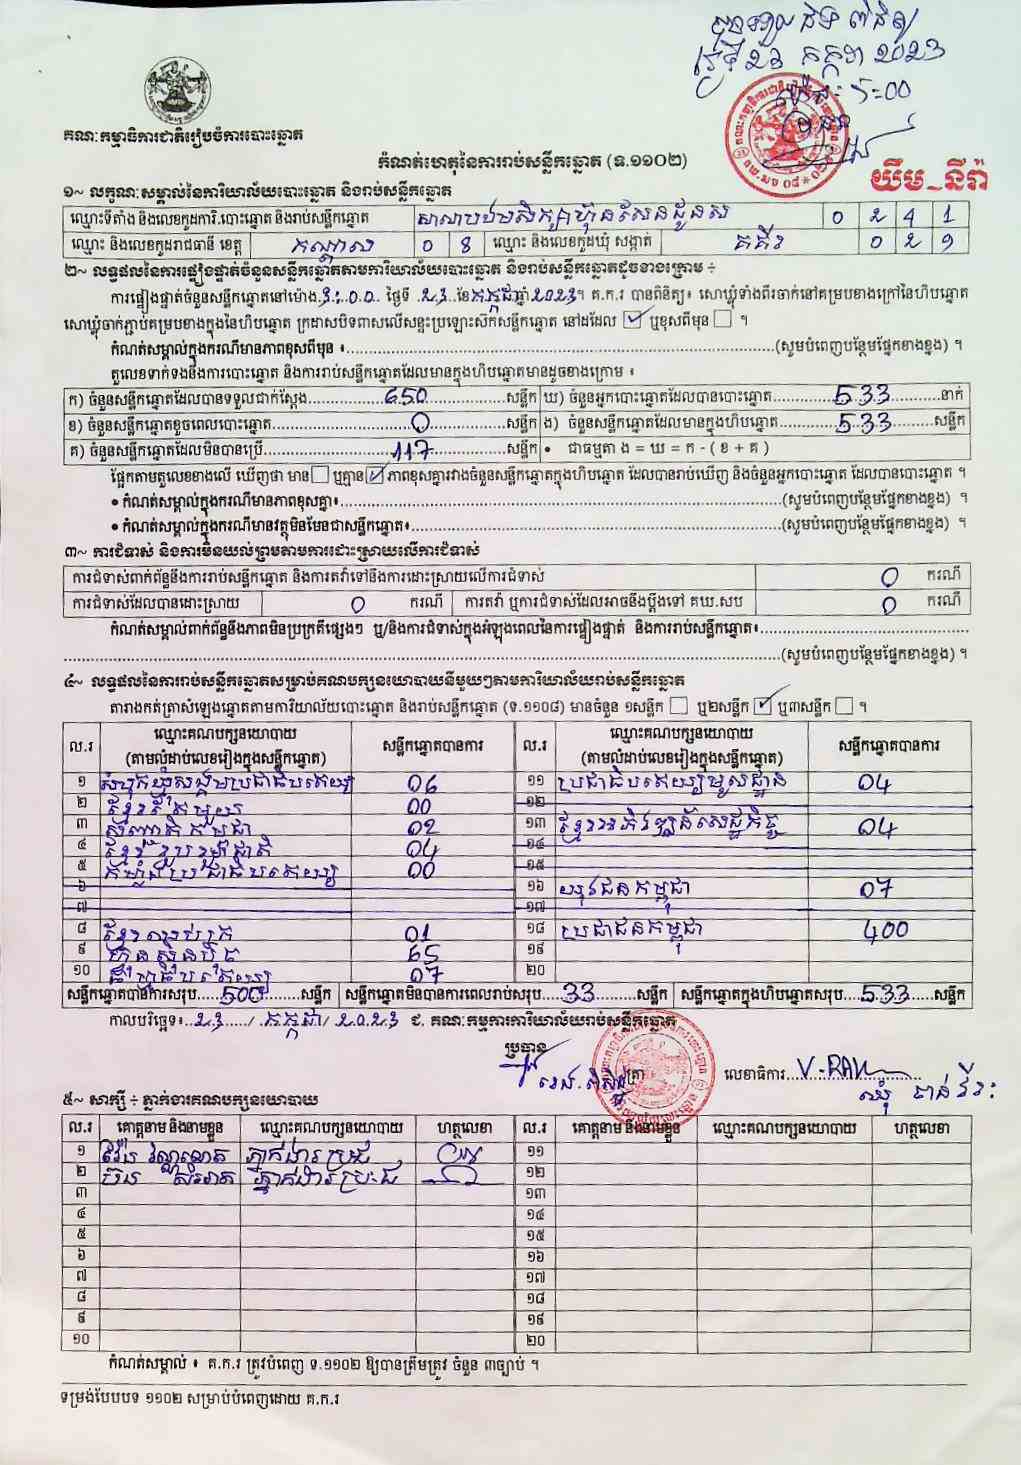 គណៈកម្មាធិការជាតិរៀបចំការបោះឆ្នោត
២៣ កក្កដា 2023
5:00
យឹម-នីរ៉ា
កំណត់ហេតុនៃការរាប់សន្លឹកឆ្នោត (ទ.១១០២)
១~ លក្ខណៈសម្គាល់នៃការិយាល័យបោះឆ្នោត និងរាប់សន្លឹកឆ្នោត
ឈ្មោះទីតាំង និងលេខកូដការិ.បោះឆ្នោត និងរាប់សន្លឹកឆ្នោត 0 2 4 1
ឈ្មោះ និងលេខកូដរាជធានី ខេត្ត កណ្តាល 0 8 ឈ្មោះ និងលេខកូដឃុំ សង្កាត់ គគីរ 0 2 1
២~ លទ្ធផលនៃការផ្ទៀងផ្ទាត់ចំនួនសន្លឹកឆ្នោតតាមការិយាល័យបោះឆ្នោត និងរាប់សន្លឹកឆ្នោតដូចខាងក្រោម ÷
ការផ្ទៀងផ្ទាត់ចំនួនសន្លឹកឆ្នោតនៅម៉ោង 3:00 ថ្ងៃទី 23 ខែ កក្កដា ឆ្នាំ 2023។ គ.ក.រ បានពិនិត្យ៖ សោឃ្លុំទាំងពីរចាក់នៅគម្របខាងក្រៅនៃហិបឆ្នោត
សោឃ្លុំចាក់ភ្ជាប់គម្របខាងក្នុងនៃហិបឆ្នោត ក្រដាសបិទពាសលើសន្ទះប្រឡោះស៊កសន្លឹកឆ្នោត នៅដដែល ☑ ឬខុសពីមុន ☐ ។
កំណត់សម្គាល់ក្នុងករណីមានភាពខុសពីមុន ៖ (សូមបំពេញបន្ថែមផ្នែកខាងខ្នង) ។
តួលេខទាក់ទងនឹងការបោះឆ្នោត និងការរាប់សន្លឹកឆ្នោតដែលមានក្នុងហិបឆ្នោតមានដូចខាងក្រោម ៖
ក) ចំនួនសន្លឹកឆ្នោតដែលបានទទួលជាក់ស្តែង 650 សន្លឹក ឃ) ចំនួនអ្នកបោះឆ្នោតដែលបានបោះឆ្នោត 533 នាក់
ខ) ចំនួនសន្លឹកឆ្នោតខូចពេលបោះឆ្នោត 0 សន្លឹក ង) ចំនួនសន្លឹកឆ្នោតដែលមានក្នុងហិបឆ្នោត 533 សន្លឹក
គ) ចំនួនសន្លឹកឆ្នោតដែលមិនបានប្រើ 117 សន្លឹក • ជាធម្មតា ង = ឃ = ក - ( ខ + គ )
ផ្អែកតាមតួលេខខាងលើ ឃើញថា មាន ☐ ឬគ្មាន ☑ ភាពខុសគ្នារវាងចំនួនសន្លឹកឆ្នោតក្នុងហិបឆ្នោត ដែលបានរាប់ឃើញ និងចំនួនអ្នកបោះឆ្នោត ដែលបានបោះឆ្នោត ។
• កំណត់សម្គាល់ក្នុងករណីមានភាពខុសគ្នា៖ (សូមបំពេញបន្ថែមផ្នែកខាងខ្នង) ។
• កំណត់សម្គាល់ក្នុងករណីមានវត្ថុមិនមែនជាសន្លឹកឆ្នោត៖ (សូមបំពេញបន្ថែមផ្នែកខាងខ្នង) ។
៣~ ការជំទាស់ និងការមិនយល់ព្រមតាមការដោះស្រាយលើការជំទាស់
ការជំទាស់ពាក់ព័ន្ធនឹងការរាប់សន្លឹកឆ្នោត និងការតវ៉ាទៅនឹងការដោះស្រាយលើការជំទាស់ 0 ករណី
ការជំទាស់ដែលបានដោះស្រាយ 0 ករណី ការតវ៉ា ឬការជំទាស់ដែលអាចនឹងប្តឹងទៅ គឃ.សប 0 ករណី
កំណត់សម្គាល់ពាក់ព័ន្ធនឹងភាពមិនប្រក្រតីផ្សេងៗ ឬ/និងការជំទាស់ក្នុងអំឡុងពេលនៃការផ្ទៀងផ្ទាត់ និងការរាប់សន្លឹកឆ្នោត៖
(សូមបំពេញបន្ថែមផ្នែកខាងខ្នង) ។
៤~ លទ្ធផលនៃការរាប់សន្លឹកឆ្នោតសម្រាប់គណបក្សនយោបាយនីមួយៗតាមការិយាល័យរាប់សន្លឹកឆ្នោត
តារាងកត់ត្រាសំឡេងឆ្នោតតាមការិយាល័យបោះឆ្នោត និងរាប់សន្លឹកឆ្នោត (ទ.១១០៨) មានចំនួន ១សន្លឹក ☐ ឬ២សន្លឹក ☑ ឬ៣សន្លឹក ☐ ។
ល.រ ឈ្មោះគណបក្សនយោបាយ (តាមលំដាប់លេខរៀងក្នុងសន្លឹកឆ្នោត) សន្លឹកឆ្នោតបានការ ល.រ ឈ្មោះគណបក្សនយោបាយ (តាមលំដាប់លេខរៀងក្នុងសន្លឹកឆ្នោត) សន្លឹកឆ្នោតបានការ
១ សំបុកឃ្មុំសង្គមប្រជាធិបតេយ្យ 06 ១១ ប្រជាធិបតេយ្យមូលដ្ឋាន 04
២ ខ្មែរតែមួយ 00 ១២
៣ សញ្ជាតិកម្ពុជា 02 ១៣ ខ្មែរអភិវឌ្ឍន៍សេដ្ឋកិច្ច 04
៤ ខ្មែររួបរួមជាតិ 04 ១៤
៥ កម្លាំងប្រជាធិបតេយ្យ 00 ១៥
៦ ១៦ យុវជនកម្ពុជា 07
៧ ១៧
៨ ខ្មែរឈប់ក្រ 01 ១៨ ប្រជាជនកម្ពុជា 400
៩ ហ៊្វុនស៊ិនប៉ិច 65 ១៩
១០ ធម្មាធិបតេយ្យ 07 ២០
សន្លឹកឆ្នោតបានការសរុប 500 សន្លឹក សន្លឹកឆ្នោតមិនបានការពេលរាប់សរុប 33 សន្លឹក សន្លឹកឆ្នោតក្នុងហិបឆ្នោតសរុប 533 សន្លឹក
កាលបរិច្ឆេទ៖ 23 / កក្កដា / 2023 ជ. គណៈកម្មការការិយាល័យរាប់សន្លឹកឆ្នោត
ប្រធាន
ត្រា លេខាធិការ
៥~ សាក្សី ÷ ភ្នាក់ងារគណបក្សនយោបាយ
ល.រ គោត្តនាម និងនាមខ្លួន ឈ្មោះគណបក្សនយោបាយ ហត្ថលេខា ល.រ គោត្តនាម និងនាមខ្លួន ឈ្មោះគណបក្សនយោបាយ ហត្ថលេខា
១ ភ្នាក់ងារ ១១
២ ភ្នាក់ងារ ១២
៣ ១៣
៤ ១៤
៥ ១៥
៦ ១៦
៧ ១៧
៨ ១៨
៩ ១៩
១០ ២០
កំណត់សម្គាល់ ៖ គ.ក.រ ត្រូវបំពេញ ទ.១១០២ ឱ្យបានត្រឹមត្រូវ ចំនួន ៣ច្បាប់ ។
ទម្រង់បែបបទ ១១០២ សម្រាប់បំពេញដោយ គ.ក.រ